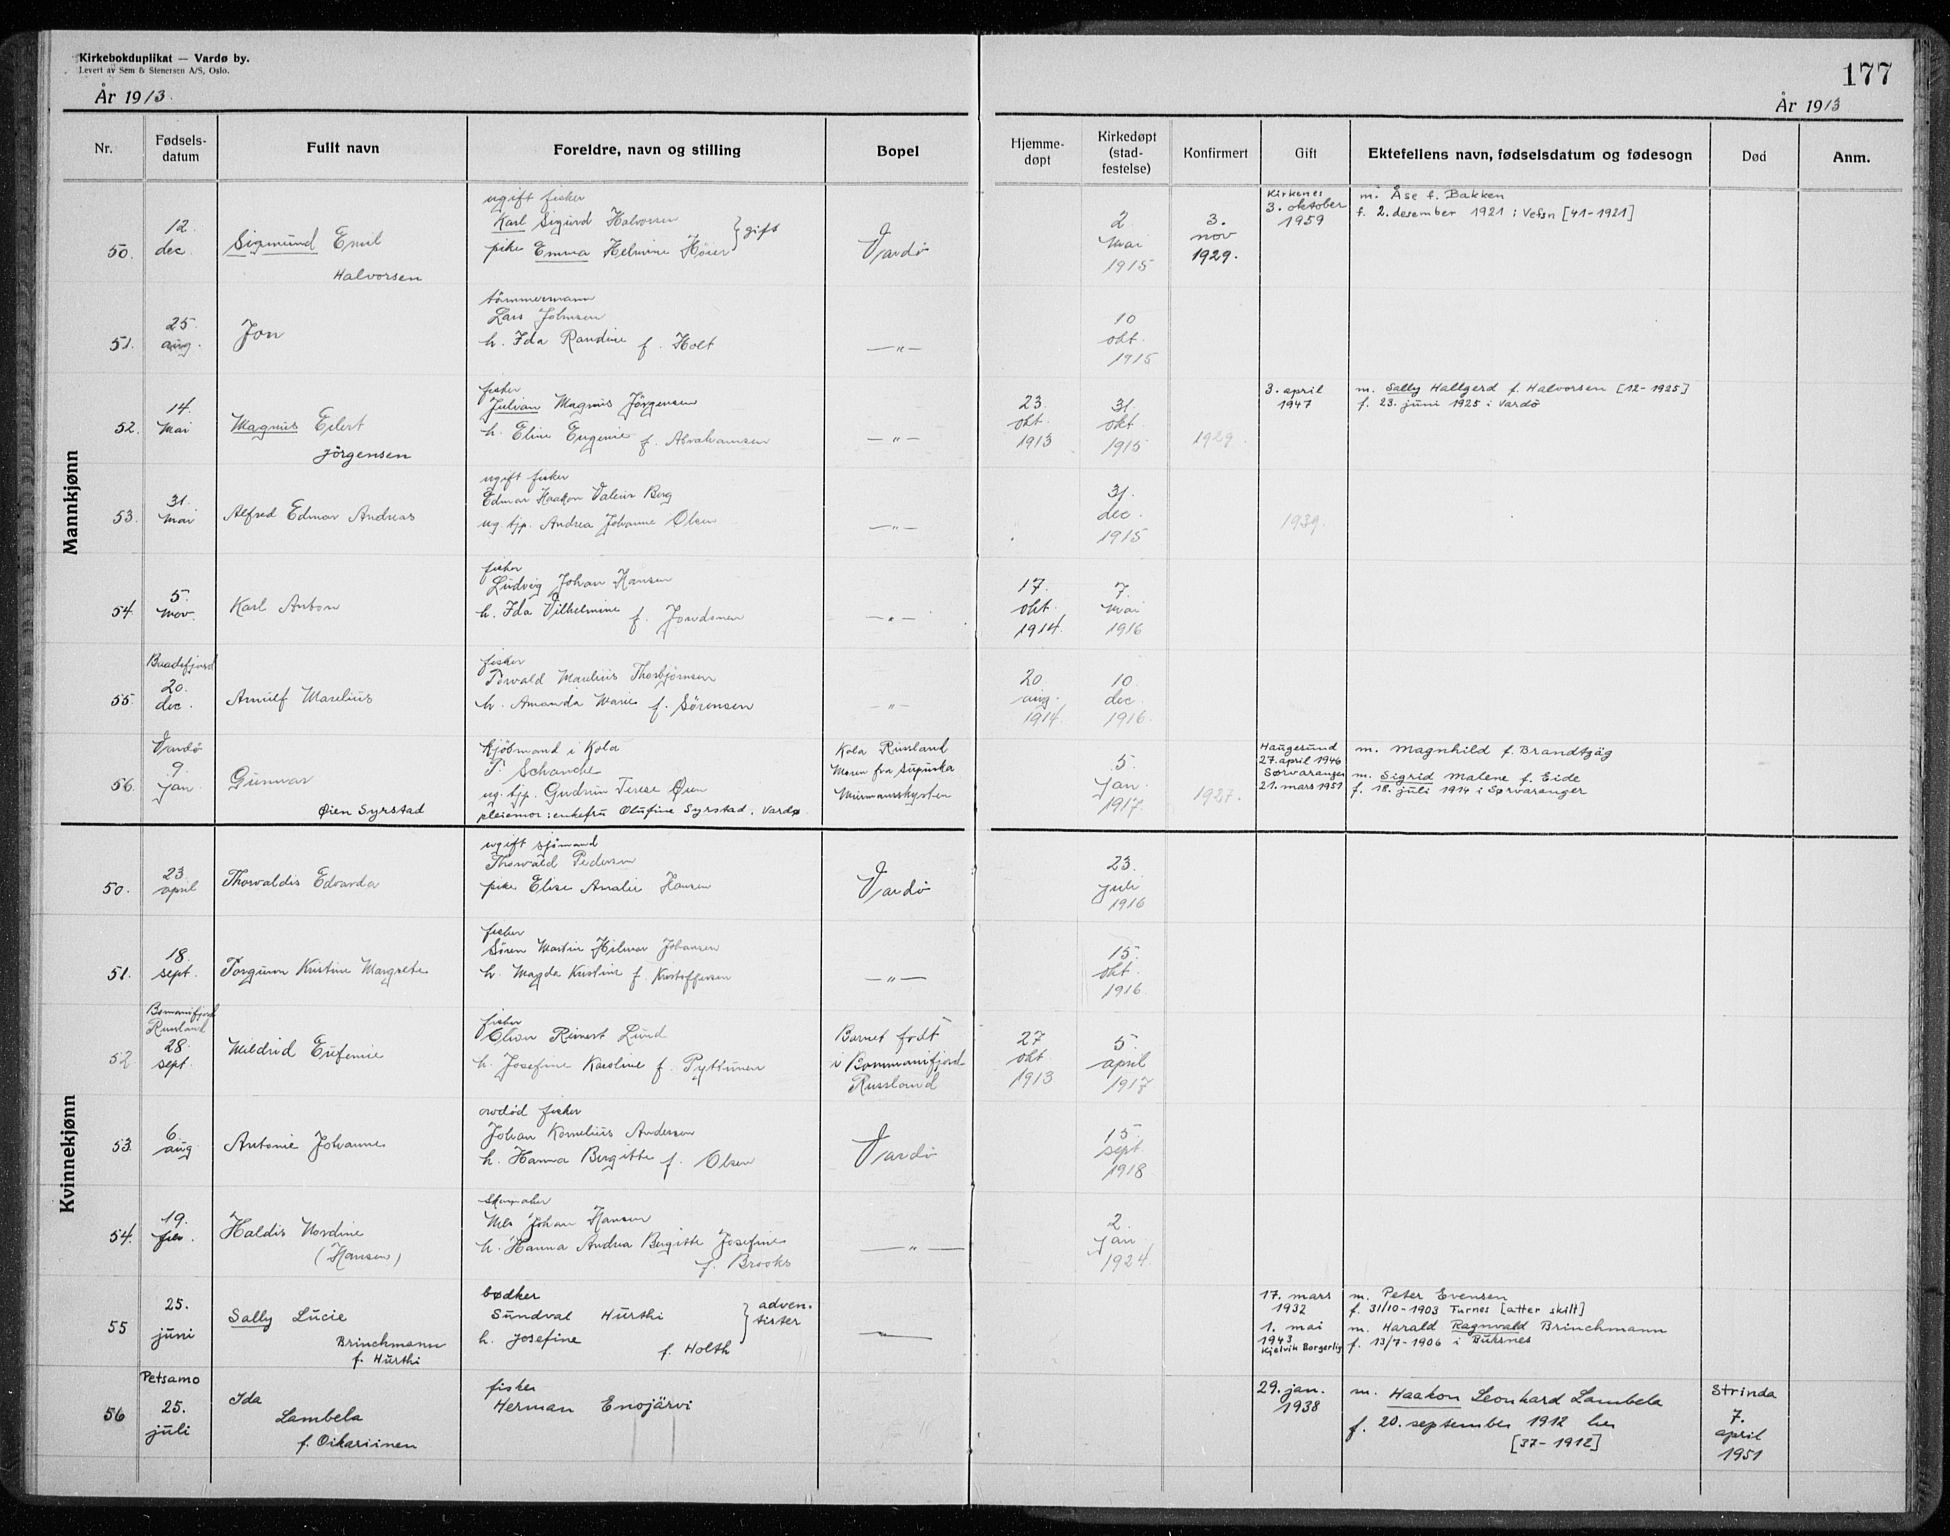 Kirkebokduplikat — Vardø by.
Levert av Sem & Stenersen A/S, Oslo.
177
År 1913.
År 1913
Nr.
Fødsels-
datum
Fullt navn
Foreldre, navn og stilling
Bopel
Hjemme-
døpt
Kirkedøpt
(stad-
festelse)
Konfirmert
Gift
Ektefellens navn, fødselsdatum og fødesogn
Død
Anm.
Mannkjønn
50.
12.
dec.
Sigmund Emil
Halvorsen
ugift fisker
Karl Sigurd Halvorsen
pike Emma Helmine Höier } gift
Vardö
2.
mai
1915
3.
nov
1929.
Kirkenes
3. oktober
1959
m. Åse f. Bakken
f. 2. desember 1921 i Vefsn [41-1921]
51.
25.
aug.
Jon
tömmermann
Lars Johnsen
h. Ida Randine f. Holt
—"—
10
okt.
1915
52.
14.
mai
Magnus Eilert
Jörgensen
fisker
Julian Magnus Jörgensen
h. Eline Eugenie f. Abrahamsen
—"—
23.
okt.
1913
31.
okt.
1915
1929.
3. april
1947
m. Sally Hallgerd f. Halvorsen [12-1925]
f. 23. juni 1925 i Vardö
53.
31.
mai
Alfred Edmar Andreas
ugift fisker
Edmar Haakon Valeur Berg
ug. tjp. Andrea Johanne Olsen
—"—
31.
dec.
1915
1939.
54.
5.
nov.
Karl Anton
fisker
Ludvig Johan Hansen
h. Ida Vilhelmine f.
—"—
17.
okt.
1914.
7.
mai
1916
55.
Baadsfjord
20.
dec.
Arnulf Marelius
fisker
Torvald Marelius Thorbjörnsen
h. Amanda Marie f. Sörensen
—"—
20.
aug.
1914.
10.
dec.
1916.
56.
Vardö
9.
jan.
Gunnar
Øien Syrstad
Kjöbmand i Kola
P. Schanche
ug. tjp. Gudrun Terese Øien
pleiemor: enkefru Olufine Syrstad, Vardø
Kola Russland
Moren fra
Murmanskysten
5.
jan.
1917.
1927.
Haugesund
27. april 1946
Sørvaranger
21. mars 1951
m. Magnhild f. Brandtzäg
m. Sigrid Malene f. Eide
f. 18. juli 1914 i Sørvaranger
Kvinnekjønn
50.
23.
april
Thorvaldis Edvarda
ugift sjömand
Thorvald Pedersen
pike Elise Amalie Hansen
Vardö
23.
juli
1916
51.
18.
sept.
Torgunn Kristine Margrete
fisker
Sören Martin Hilmar Johansen
h. Magda Kristine f. Kristoffersen
—"—
15.
okt.
1916
52
Russland
28.
sept.
Meldrid Eufemie
fisker
Reinert Lund
h. Josefine Karoline f.
Barnet födt
i Bommenifjord
Russland
27
okt.
1913
5.
april
1917
53.
6.
aug
Antonie Johanne
avdöd fisker
Johan Kornelius Andersen
h. Hanna Bergitte f. Olsen
Vardö
15.
sept
1918
54.
19.
feb.
Haldis Nordine
(Hansen)
skomaker
Nils Johan Hansen
h. Hanna Andrea Bergitte Josefine
f. Brooks
—"—
2.
jan.
1924.
55
25.
juni
Sally Lucie
Brinchmann
f. Hurthi
bødker
Sundval Hurthi
h. Josefine
f. Holth } adven-
tister
—
17. mars
1932
1. mai
1943
Kjelvik Borgerlig
m. Peter Evensen
f. 31/10-1903 Turnes [atter skilt]
m. Harald Ragnvald Brinchmann
f. 13/7-1906 i Buksnes
56
Petsamo
25.
juli
Ida
Lambela
f. Oikariinen
fisker
Herman Enojärvi
29. jan.
1938
m. Haakon Leonhard Lambela
f. 20. september 1912 her
[37-1912]
Strinda
7.
april
1951